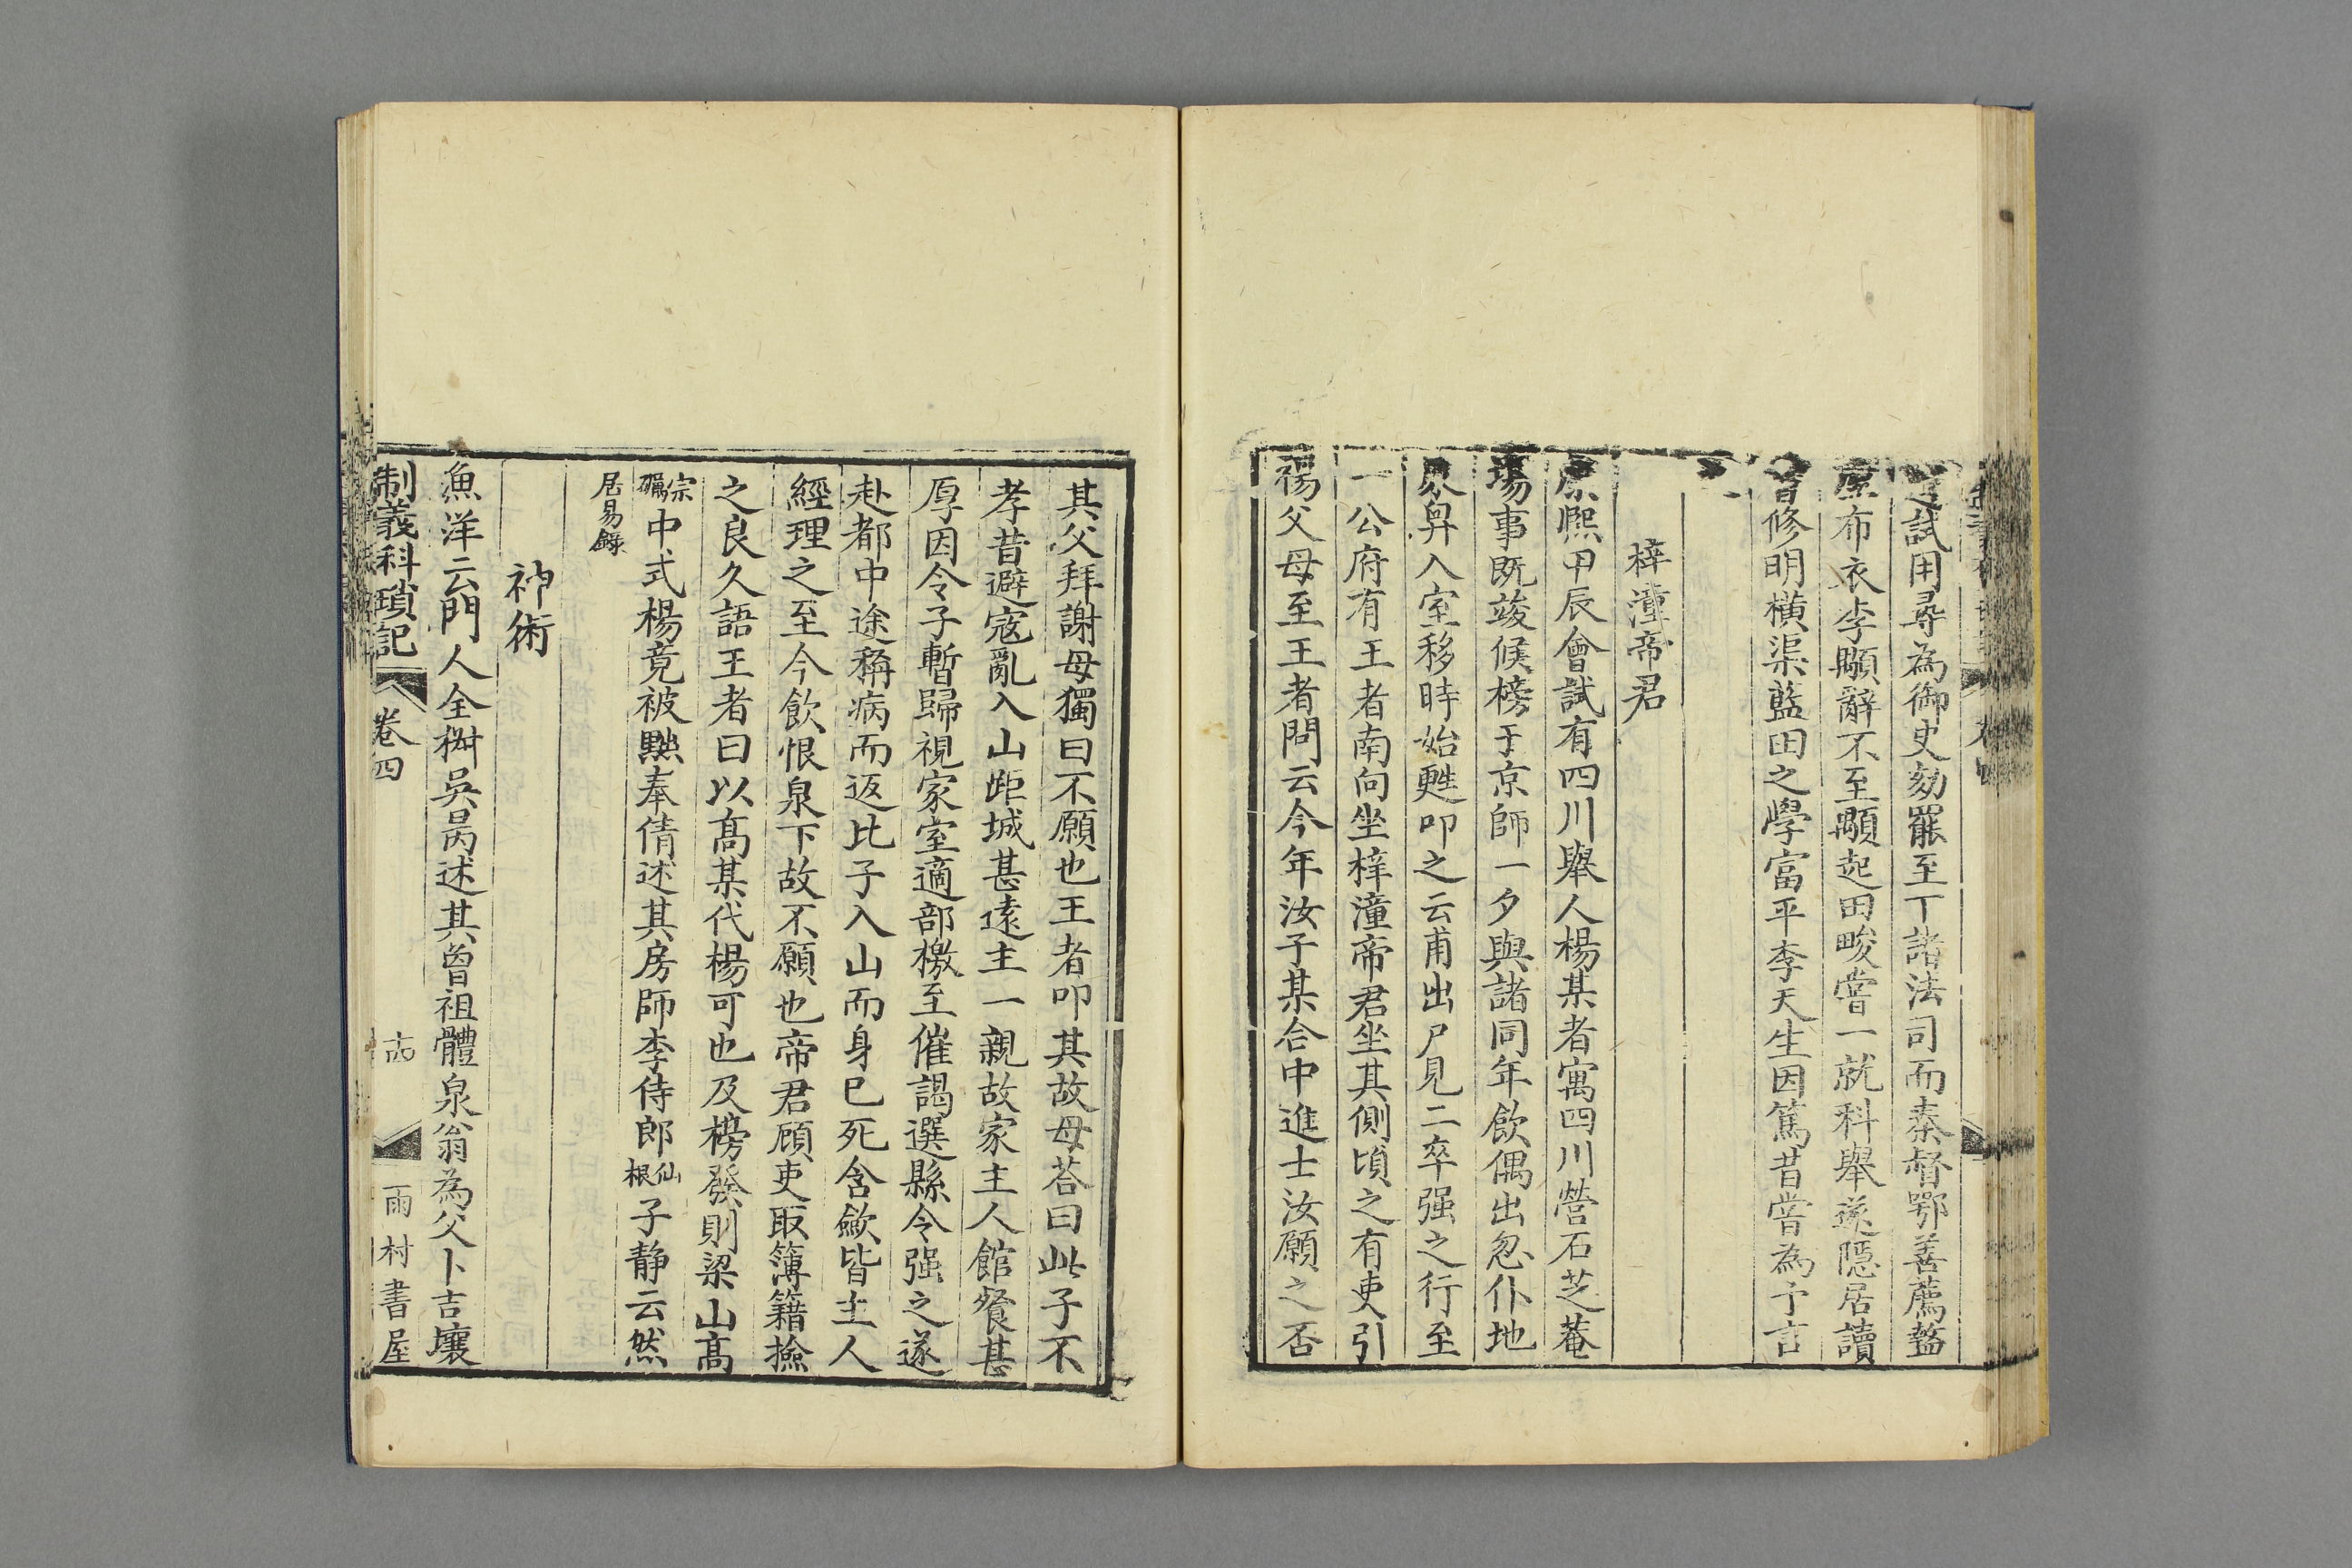 試用尋為御史劾罷至丁諸法司而秦督鄂善薦盩
厔布衣李顒辭不至顒起田畯嘗一就科舉遂隱居讀
書修明橫渠藍田之學富平李天生因篤昔嘗為予言
梓潼帝君
康熙甲辰會試有四川舉人楊某者寓四川營石芝菴
場事既竣候榜于京師一夕與諸同年飲偶出忽仆地
衆舁入室移時始甦叩之云甫出戶見二卒强之行至
一公府有王者南向坐梓潼帝君坐其側頃之有吏引
楊父母至王者問云今年汝子某合中進士汝願之否
其父拜謝母獨曰不願也王者叩其故母荅曰此子不
孝昔避寇亂入山距城甚遠主一親故家主人館餐甚
厚因令子暫歸視家室適部檄至催謁選縣令强之遂
赴都中途稱病而返比子入山而身已死含歛皆主人
經理之至今飲恨泉下故不願也帝君顧吏取簿籍撿
之良久語王者曰以髙某代楊可也及榜發則梁山髙
宗礪中式楊竟被黜奉倩述其房師李侍郎仙根子静云然
居易錄
神術
魚洋云門人全椒吳昺述其曾祖體泉翁為父卜吉壤
制義科瑣記 卷四 十四 雨村書屋